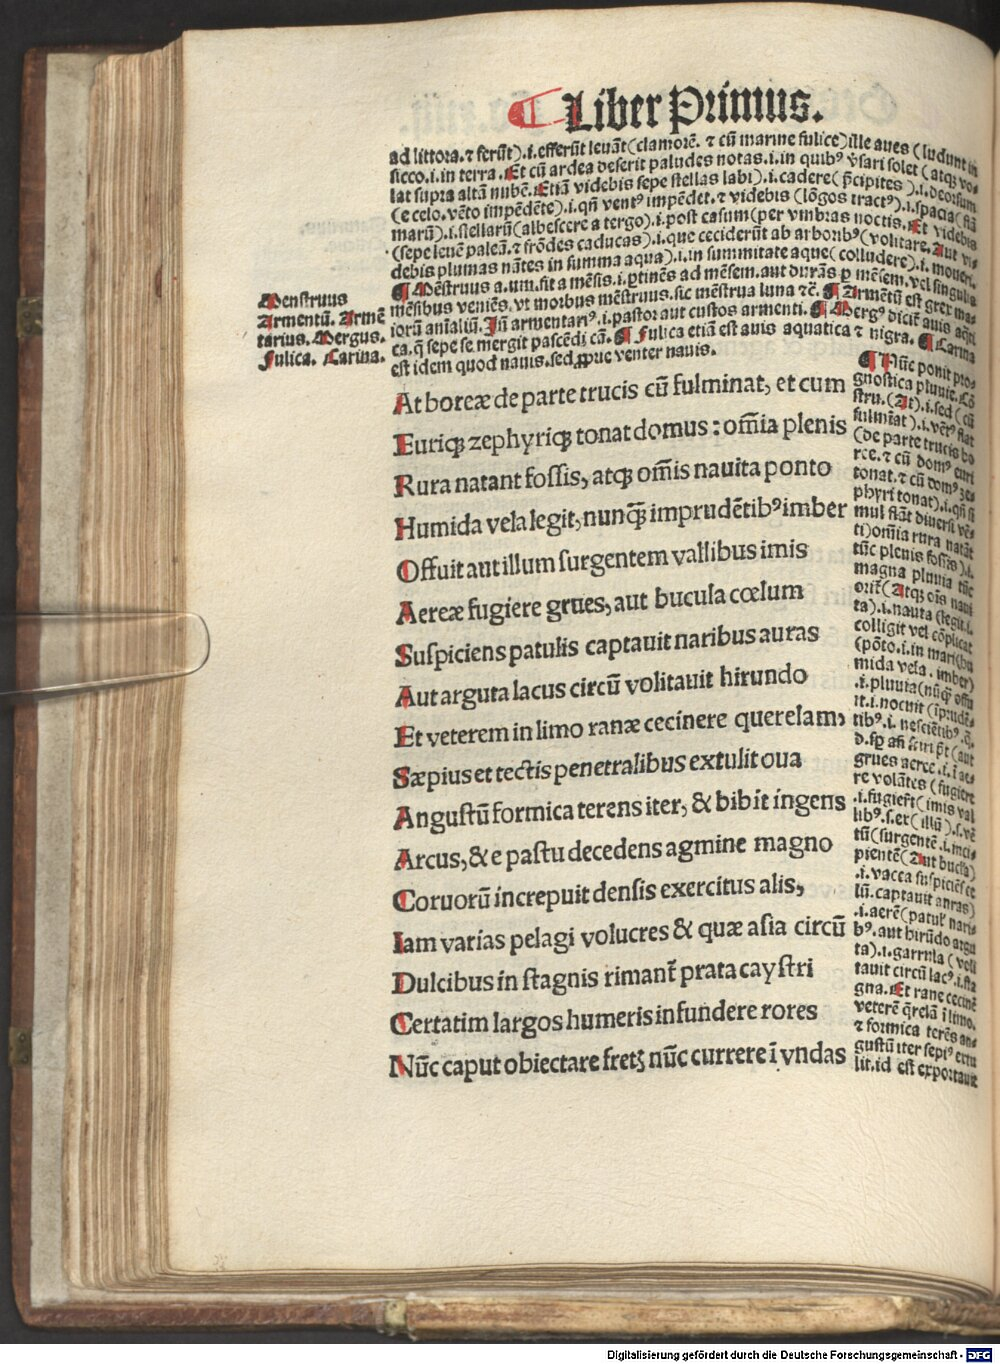 Liber Primus.
ad littora. ⁊ ferūt).i.efferūt leuāt(clamorē. ⁊ cū marine fulice)ille aues (ludunt in
sicco.i.in terra. Et cū ardea deserit paludes notas.i.in quibꝰ ṽsari solet (atqꝫ vo-
lat supra altā nubē. Etiā videbis sepe stellas labi).i.cadere(p̄cipites).i.deorsum
(e celo. vēto impēdēte).i.qn̄ ventꝰ impēdet. ⁊ videbis (lōgos tractꝰ).i.spacia(flā
marū).i.stellarū(albescere a tergo).i.post casum(per vmbras noctis. Et videbis
(sepe leuē paleā. ⁊ frōdes caducas).i.que ceciderūt ab arboribꝰ(volitare. Aut vi-
debis plumas nātes in summa aqua).i.in summitate aque(colludere).i.moueri.
¶ Mēstruus a.um.fit a mēsis.i.ꝑtinēs ad mēsem.aut durās ꝑ mēsem.vel singulis
mēsibus veniēs. vt morbus mēstruus. sic mēstrua luna ⁊cē. ¶ Armētū est grex ma-
iorū aīaliū. In̄ armentariꝰ.i.pastor aut custos armenti. ¶ Mergꝰ dicit̄ auis aq̄ti
ca. q̄ sepe se mergit pascēdi cā. ¶ Fulica etiā est auis aquatica ⁊ nigra. ¶ Carina
est idem quod nauis. sed ꝓprue venter nauis.
Menstruus
Armentū. Armē
tarius. Mergus.
Fulica. Carina.
At boreæ de parte trucis cū fulminat, et cum
Euriqꝫ zephyriqꝫ tonat domus : om̄ia plenis
Rura natant fossis, atqꝫ om̄is nauita ponto
Humida vela legit, nunq̄ imprudētibꝰ imber
Offuit aut illum surgentem vallibus imis
Aereæ fugiere grues, aut bucula cœlum
Suspiciens patulis captauit naribus auras
Aut arguta lacus circū volitauit hirundo
Et veterem in limo ranæ cecinere querelam,
Sæpius et tectis penetralibus extulit oua
Angustū formica terens iter, & bibit ingens
Arcus, & e pastu decedens agmine magno
Coruorū increpuit densis exercitus alis,
Iam varias pelagi volucres & quæ asia circū
Dulcibus in stagnis rimant̄ prata caystri
Certatim largos humeris infundere rores
Nūc caput obiectare fretꝫ nūc currere ī vndas
¶ Nūc ponit pro-
gnostica pluuie. Cō
stru. (At).i.sed (cū
fulmīat).i.vētꝰ flat
(de parte trucis bo
ree. ⁊ cū domꝰ euri
tonat. ⁊ cū domꝰ ze-
phyri tonat).i.qn̄ si
mul flāt diuersi vē-
ti)om̄ia rura natāt
tūc plenis fossis).i.
magna pluuia tūc
orit̄(Atqꝫ oīs naui
ta).i.nauta (legit.i.
colligit vel cōplicat
(pōto.i.in mari(hu
mida vela. imber)
.i.pluuia(nūq̄ offu
it.i.nocuit (īprudē-
tibꝰ.i. nesciētibꝰ.
grues aeree.i.ī ae-
re volātes (fugiere
.i.fugiert̄ (imis val
libꝰ.s.er(illū).s.vē
tū(surgentē.i.inci-
pientē(Aut bucla)
.i.vacca suspiciēs ce
lū. captauit auras)
.i.aerē(patul' nari-
bꝰ. aut hirūdo argu
ta).i.garrula (voli
tauit circū lacꝰ.i.sta
gna. Et rane cecinē
veterē q̄relā ī limo.
⁊ formica terēs an-
gustū iter sepiꝰ extu
lit.id est exportauit
Digitalisierung gefördert durch die Deutsche Forschungsgemeinschaft - DFG